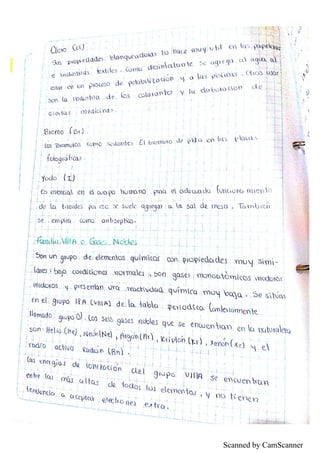 Cloro (Cl)
Sus propiedades blanqueadoras lo hace muy util en las papeleras
e industrias textiles. Como desinfectante se agrega al agua al
en un proceso de potabilización y a las piscinas. Otros usos
son la industria de los colorantes y la elaboración de
ciertas medicinas.
Bromo (Br).
Los Bromuros como sedantes. El bromuro de plata en las placas
fotográficas
Yodo (I)
Es esencial en el cuerpo humano para el adecuado funcionamiento
de la tiroides por eso se suele agregar a la sal de mesa. También
se emplea como antiséptico.
Familia VIIIA o Gases Nobles
Son un grupo de elementos químicos con propiedades muy simi-
lares: bajo condiciones normales, son gases monoatómicos inodoros
incoloros y presentan una reactividad química muy baja. Se sitúan
en el grupo 18A (VIIIA) de la tabla periodica (anteriormente
llamado grupo 0). Los seis gases nobles que se encuentran en la naturaleza
son: Helio (He), Neón (Ne), Argón (Ar), Kriptón (Kr), Xenón (Xe) y el
radio activo Radón (Rn).
Las energías de ionización del grupo VIIIA se encuentran
entre las más altas de todos los elementos, y no tienen
tendencia a aceptar electrones extra.
Scanned by CamScanner